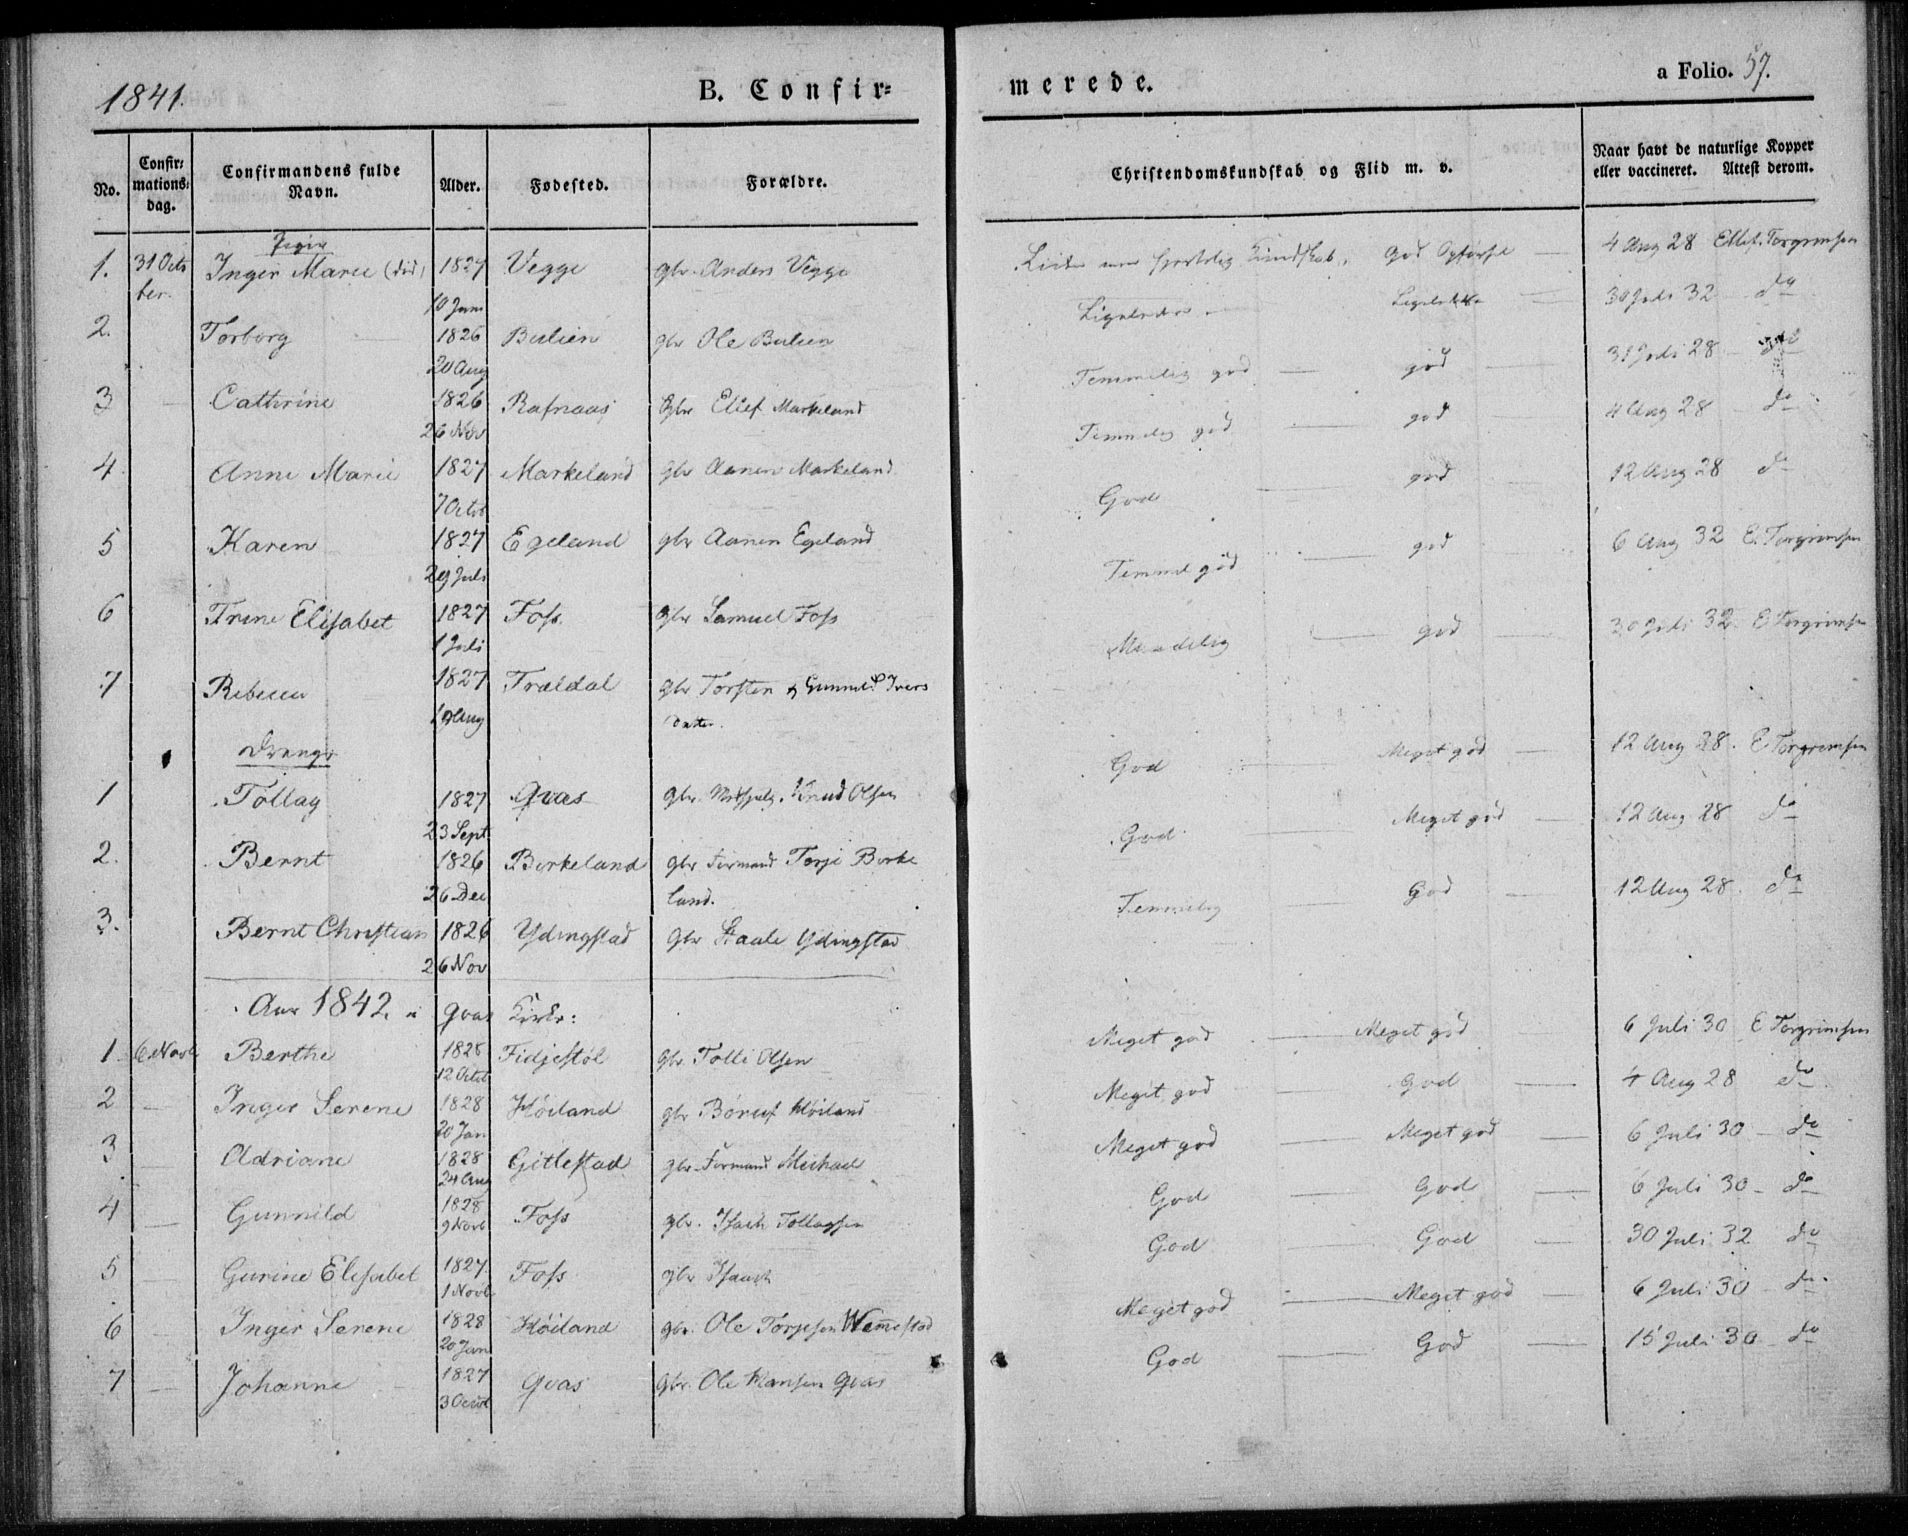 1841.
B. Confir=
No.
Confir=
mations=
dag.
Confirmandens fulde
Navn.
Alder.
Fødested.
Forældre.
Piger
1. 31 Octo Inger Marie 1827 Vegge gbr. Anders Vegge
ber. 10 Juni
2. Torborg 1826 Bulien gbr Ole Bulien
20 Aug
3 Cathrine 1826 Rafnaas Gbr Ellef Markeland
26 Nov
4 Anne Marie 1827 Markeland gbr Aanen Markeland
7 Octob
5 Karen 1827 Egeland gbr Aanen Egeland
29 Juli
6 Trine Elisabet 1827 Foss gbr Samuel Foss
1 Juli
7 Rebecca 1827 Trældal gbr Torsten & Gunnild Ivers
19 Aug datter.
Drenge
1 Tollag 1827 Qvas gbr. Knud Olsen
23 Sept
2. Bernt 1826 Birkeland gbr Formand Torje Birke
26 Dec land.
3. Bernt Christian 1826 Ydingstad gbr Staale Ydingstad
26 Nov
Aar 1842. i Qvas Kirke:
1 6 Novb Berthe 1828 Fidjestøl gbr. Tolli Olsen
12 Octob
2 Inger Serene 1828 Høiland gbr Børuf Høiland
20 Jan
3 Adriane 1828 Gitlestad gbr. Formand Michael
24 Aug
4 Gunnild 1828 Foss gbr. Isach Tollagsen
9 Novb
5 Gurine Elisabet 1827 Foss gbr Isaach
1 Novb
6 Inger Serene 1828 Høiland gbr. Ole Torjesen Wemestad
20 Jan
7 Johanne 1827 Qvas Gbr. Ole Hansen Qvas
3 Octob
merede.
a Folio. 57.
Christendomskundskab og Flid m. v.
Naar havt de naturlige Kopper
eller vaccineret. Attest derom.
Kundskab, God Opførsel 4 Aug 28 Ellef Torgrimsen
Ligeledes Ligeledes 30 Juli 32 do
Temmelig god god 31 Juli 28 do
Temmelig god god 4 Aug 28 do
God god 12 Aug 28 do
Temmel god god 6 Aug 32 E. Torgrimsen
Maadelig god 30 Juli 32. E Torgrimsen
God Meget god 12 Aug 28. E Torgrimsen
God Meget god 12 Aug 28 do
Temmelig God 12 Aug 28. do
Meget god Meget god 6 Juli 30 E Torgrimsen
Meget god God 4 Aug 28 do
Meget god Meget god 6 Juli 30 do
God God 6 Juli 30 do
God God 30 Juli 32 do
Meget god Meget god 6 Juli 30 do
God God 15 Juli 30 do